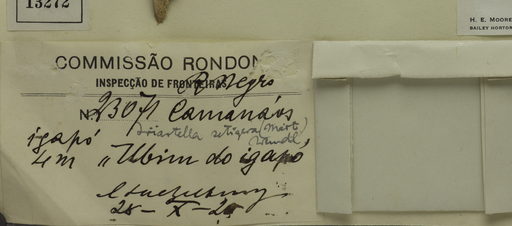 13272
H. E. MOORE
BAILEY HORTOR
COMMISSÃO RONDON
INSPECÇÃO DE FRONTEIRAS
R. Negro
N. 23071 Camanáos
Iriartella setigera (Mart.)
Wendl
igapó
4m "Ubim do igapó"
28-X-28